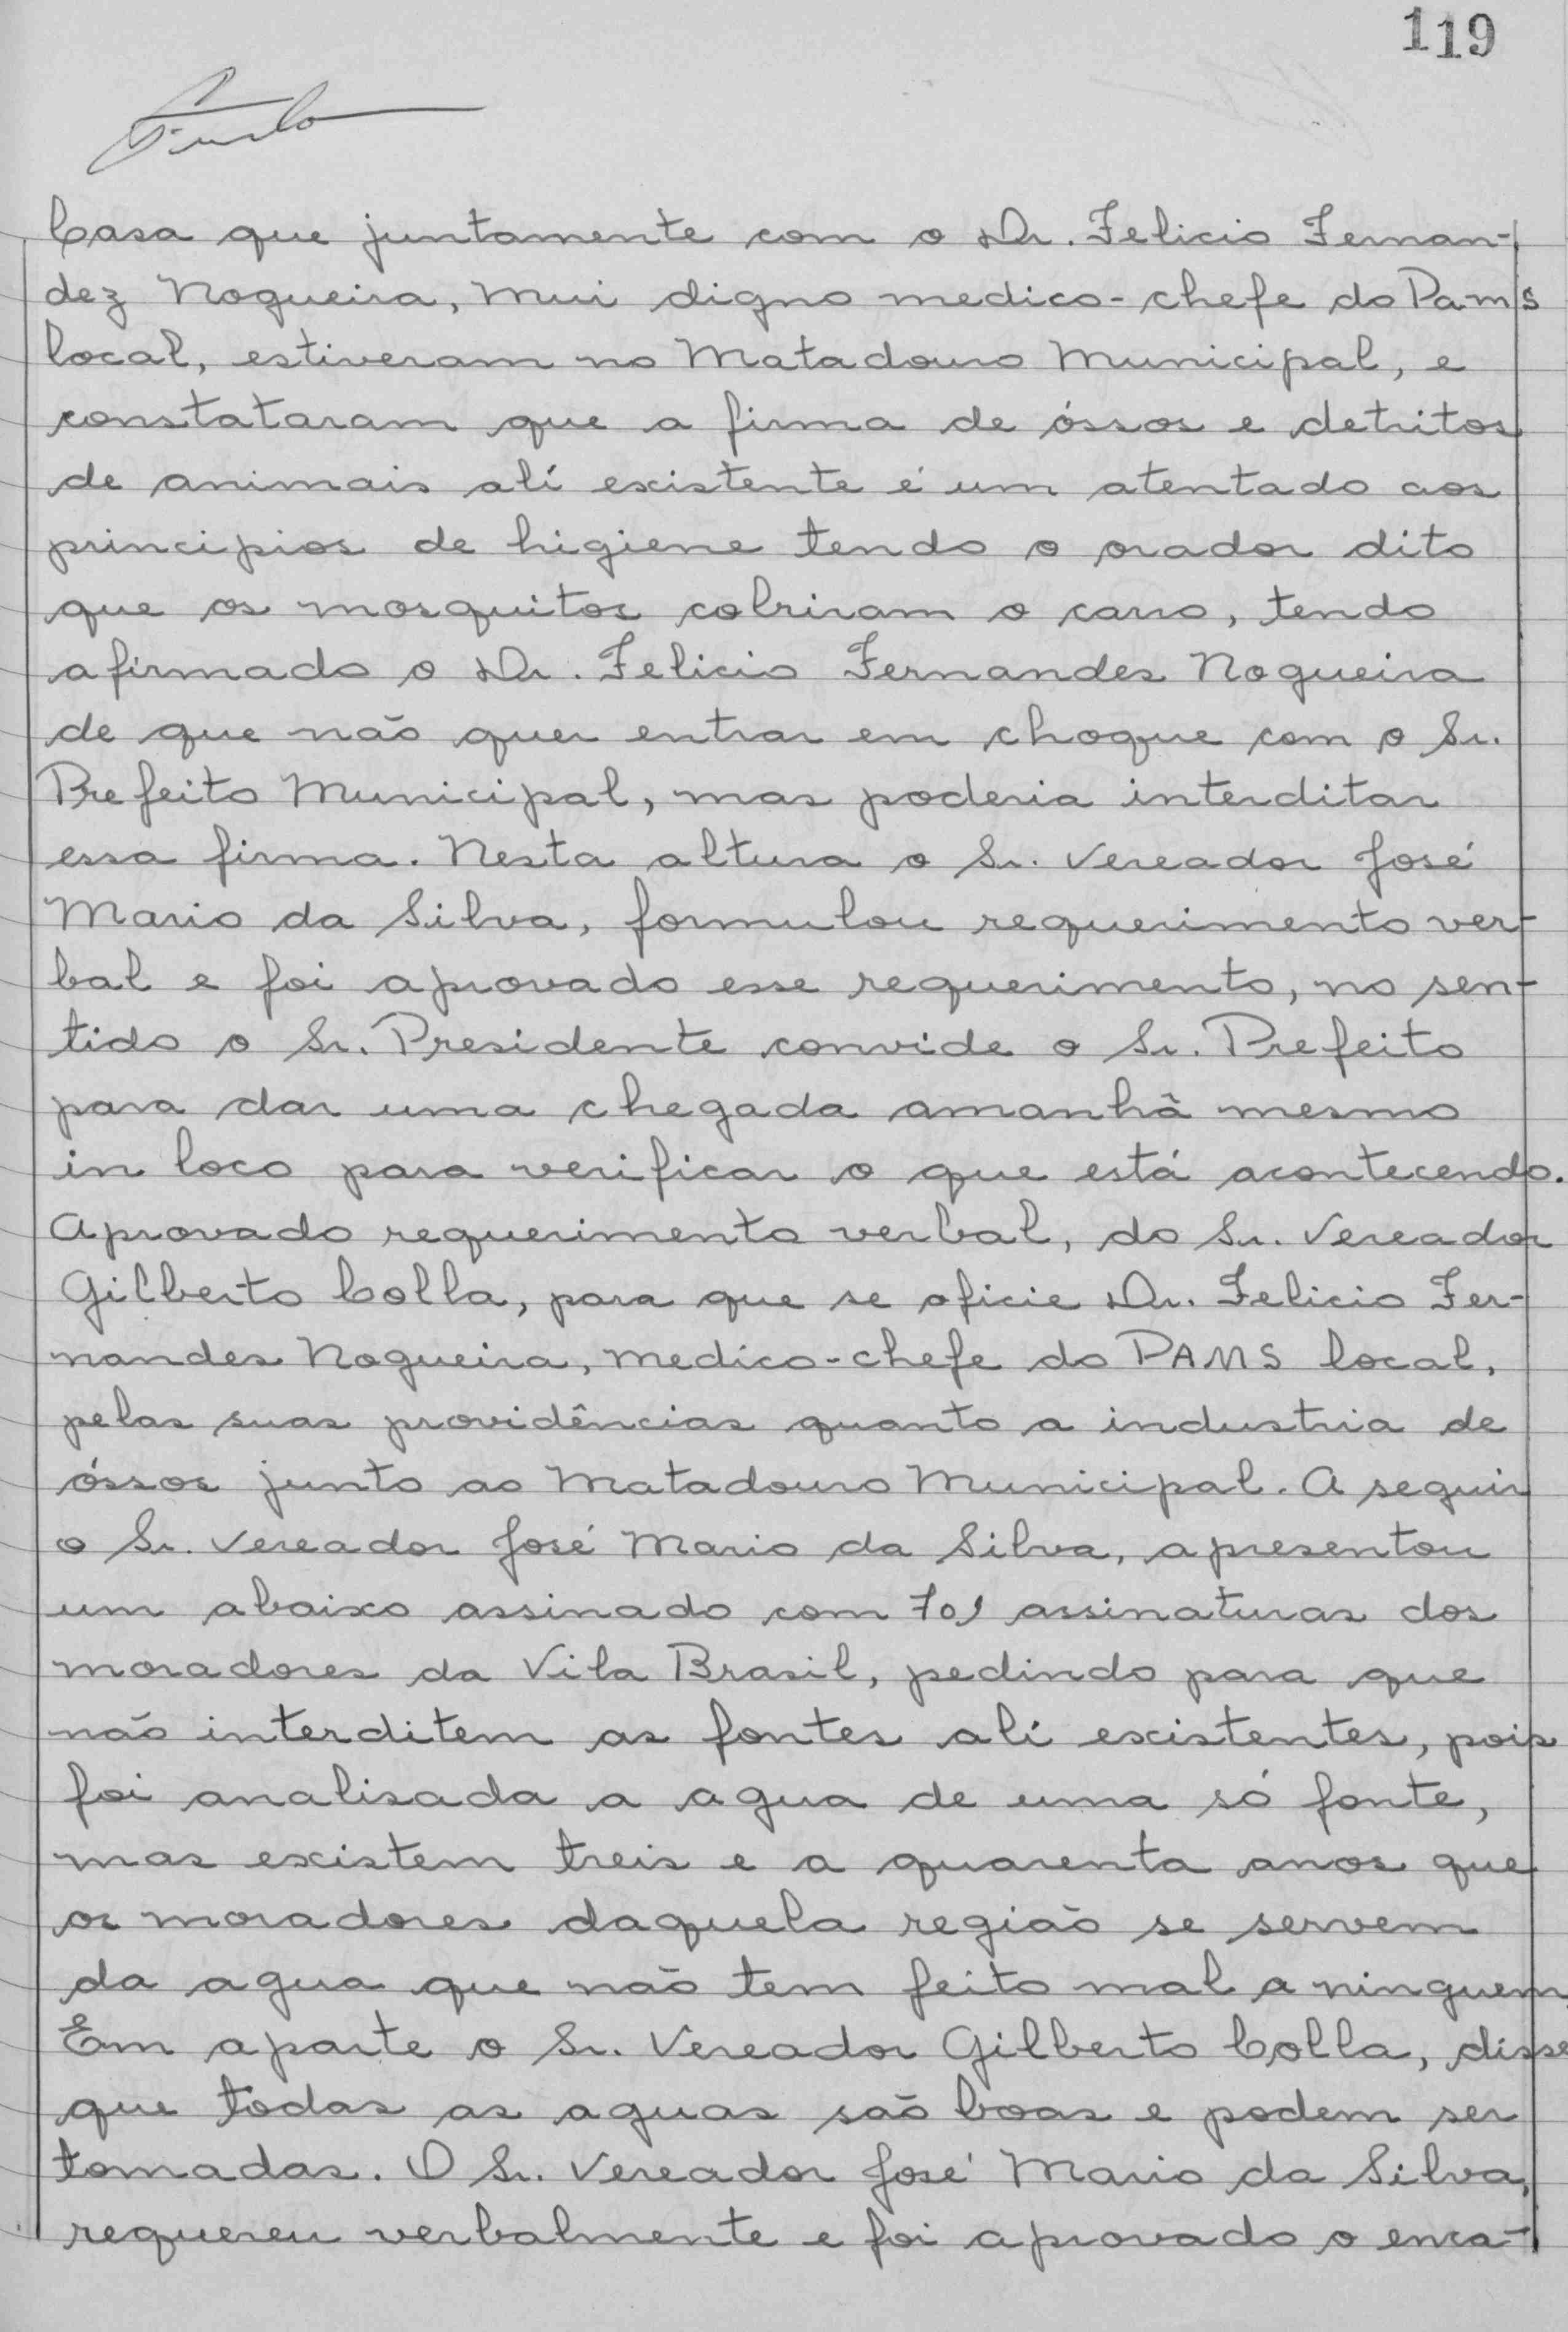 119
Casa que juntamente com o Dr. Felicio Fernan-
dez Nogueira, Mui digno medico-chefe do Pams
local, estiveram no Matadouro Municipal, e
constataram que a firma de óssos e detritos
de animais alí existente é um atentado aos
principios de higiene tendo o orador dito
que os mosquitos cobriram o carro, tendo
afirmado o Dr. Felicio Fernandes Nogueira
de que não quer entrar em choque com o Sr.
Prefeito Municipal, mas poderia interditar
essa firma. Nesta altura o Sr. Vereador José
Mario da Silva, formulou requerimento ver-
bal e foi aprovado esse requerimento, no sen-
tido o Sr. Presidente convide o Sr. Prefeito
para dar uma chegada amanhã mesmo
in loco para verificar o que está acontecendo.
Aprovado requerimento verbal, do Sr. Vereador
Gilberto Colla, para que se oficie Dr. Felicio Fer-
nandes Nogueira, medico-chefe do PAMS local,
pelas suas providências quanto a industria de
óssos junto ao Matadouro Municipal. A seguir
o Sr. Vereador José Mario da Silva, apresentou
um abaixo assinado com assinaturas dos
moradores da Vila Brasil, pedindo para que
não interditem as fontes alí existentes, pois
foi analisada a agua de uma só fonte,
mas existem treis e a quarenta anos que
os moradores daquela região se servem
da agua que não tem feito mal a ninguem.
Em aparte o Sr. Vereador Gilberto Colla, disse
que todas as aguas são boas e podem ser
tomadas. O Sr. Vereador José Mario da Silva,
requereu verbalmente e foi aprovado o enca-